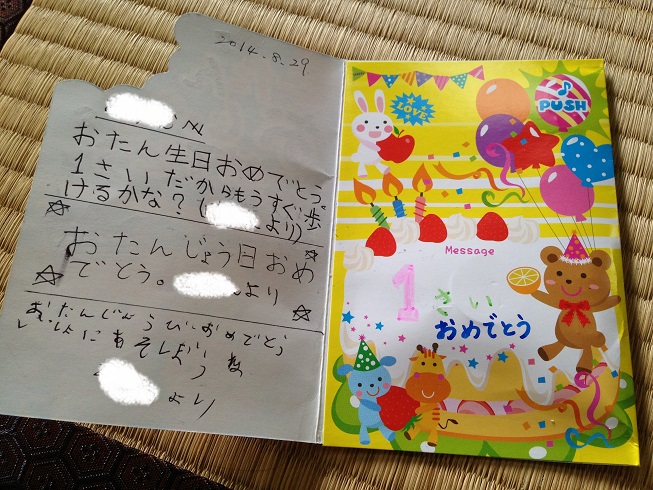 2014.8.29
へ
おたん生日おめでとう
1さいだからもうすぐ歩
けるかな?( より)
おたんじょう日おめ
でとう。 より
おたんじょうびおめでとう
いっしょにあそぼうね
より
LOVE
PUSH
Message
1さい
おめでとう